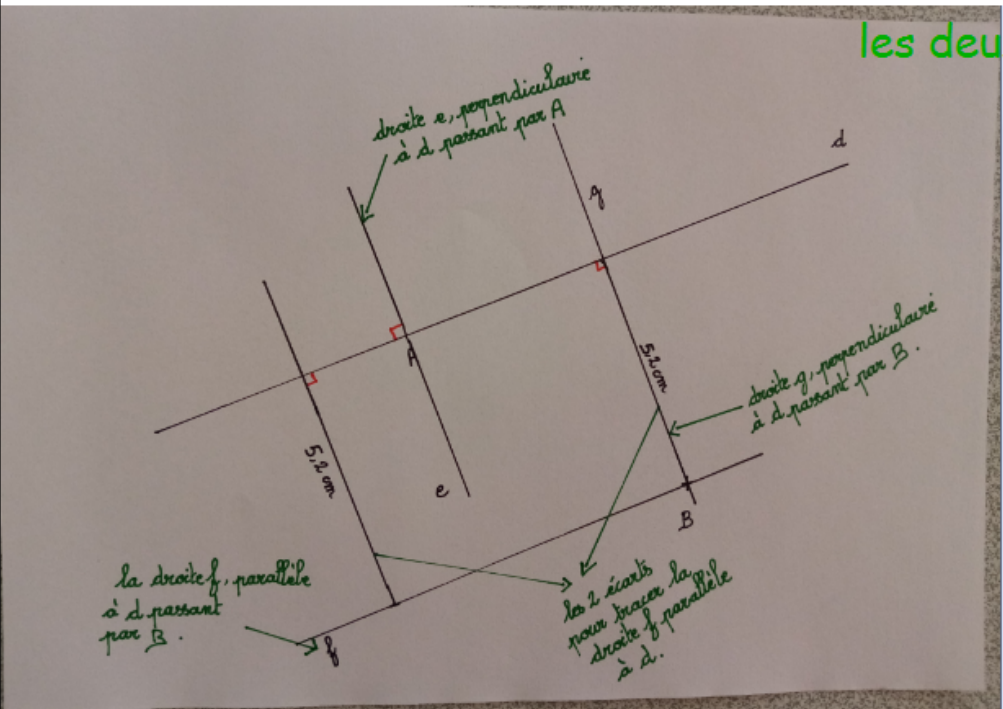 les deu
droite e, perpendiculaire
à d passant par A
d
g
A
5,2 cm
droite g, perpendiculaire
à d passant par B.
5,2 cm
e
B
la droite f, parallèle
à d passant
par B.
les 2 écarts
pour tracer la
droite f parallèle
à d.
f